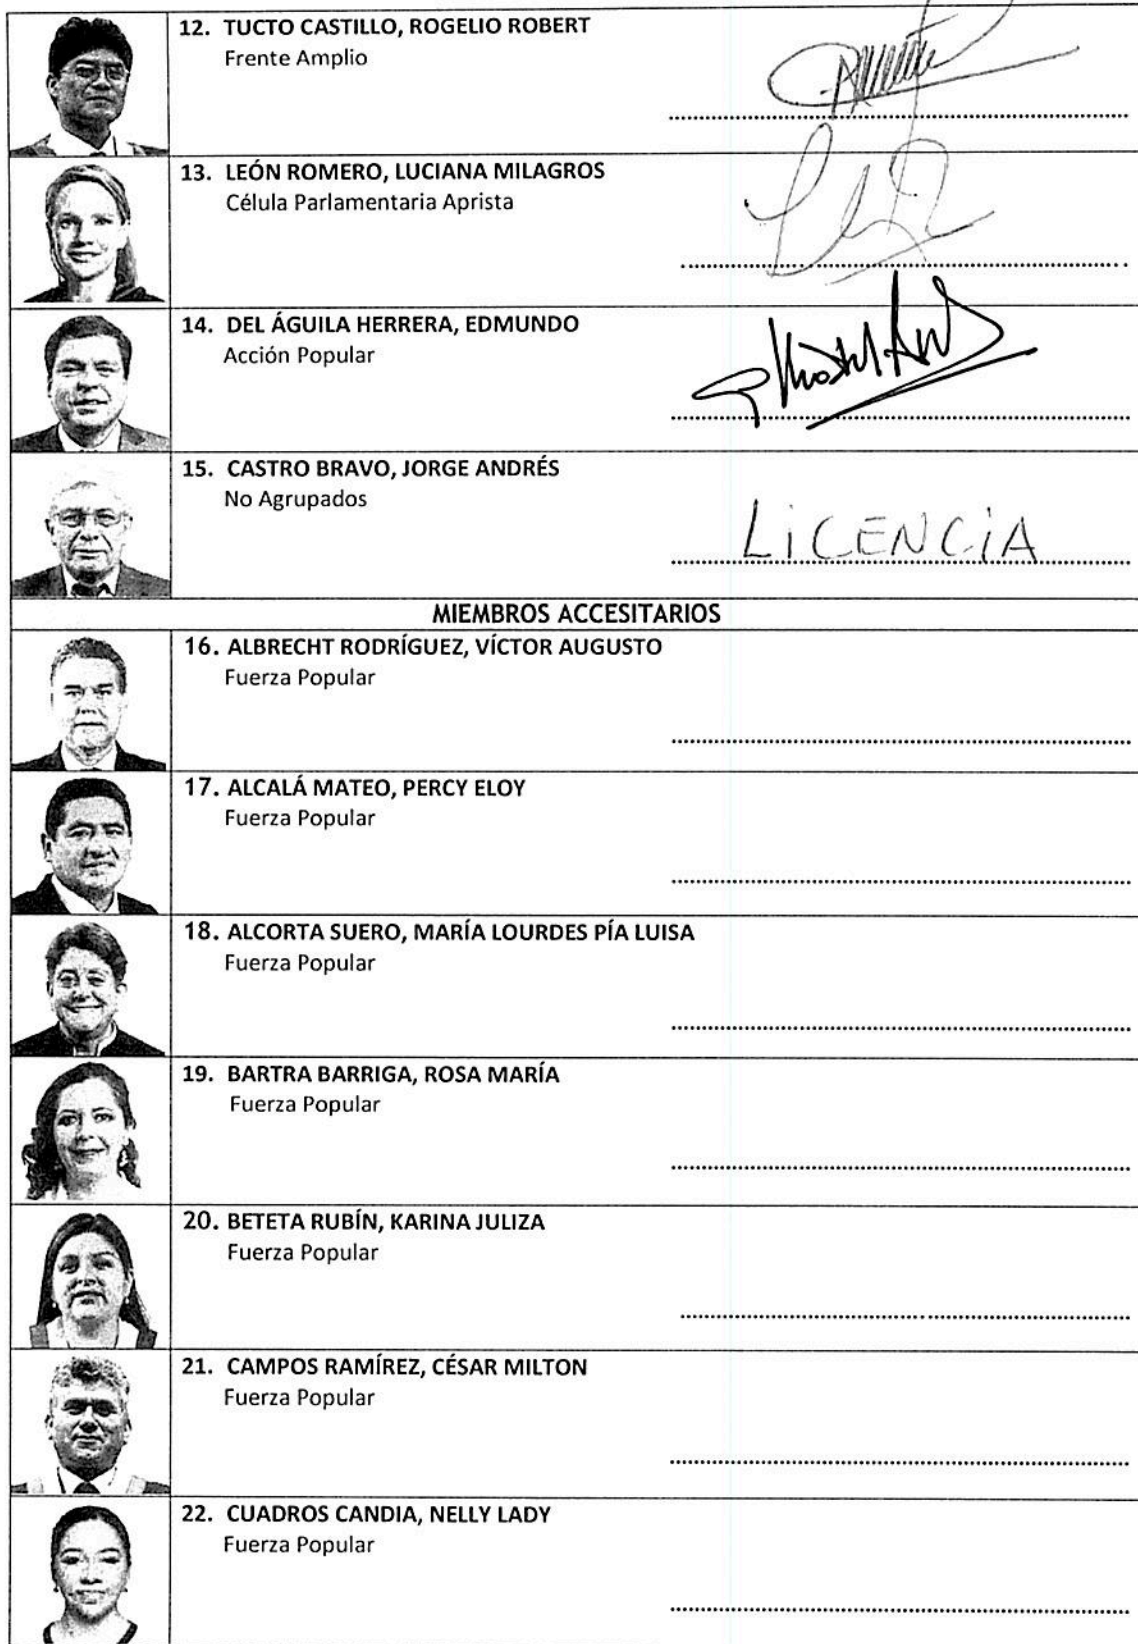 12. TUCTO CASTILLO, ROGELIO ROBERT
Frente Amplio
13. LEÓN ROMERO, LUCIANA MILAGROS
Célula Parlamentaria Aprista
14. DEL ÁGUILA HERRERA, EDMUNDO
Acción Popular
15. CASTRO BRAVO, JORGE ANDRÉS
No Agrupados
LiCENCiA
MIEMBROS ACCESITARIOS
16. ALBRECHT RODRÍGUEZ, VÍCTOR AUGUSTO
Fuerza Popular
17. ALCALÁ MATEO, PERCY ELOY
Fuerza Popular
18. ALCORTA SUERO, MARÍA LOURDES PÍA LUISA
Fuerza Popular
19. BARTRA BARRIGA, ROSA MARÍA
Fuerza Popular
20. BETETA RUBÍN, KARINA JULIZA
Fuerza Popular
21. CAMPOS RAMÍREZ, CÉSAR MILTON
Fuerza Popular
22. CUADROS CANDIA, NELLY LADY
Fuerza Popular